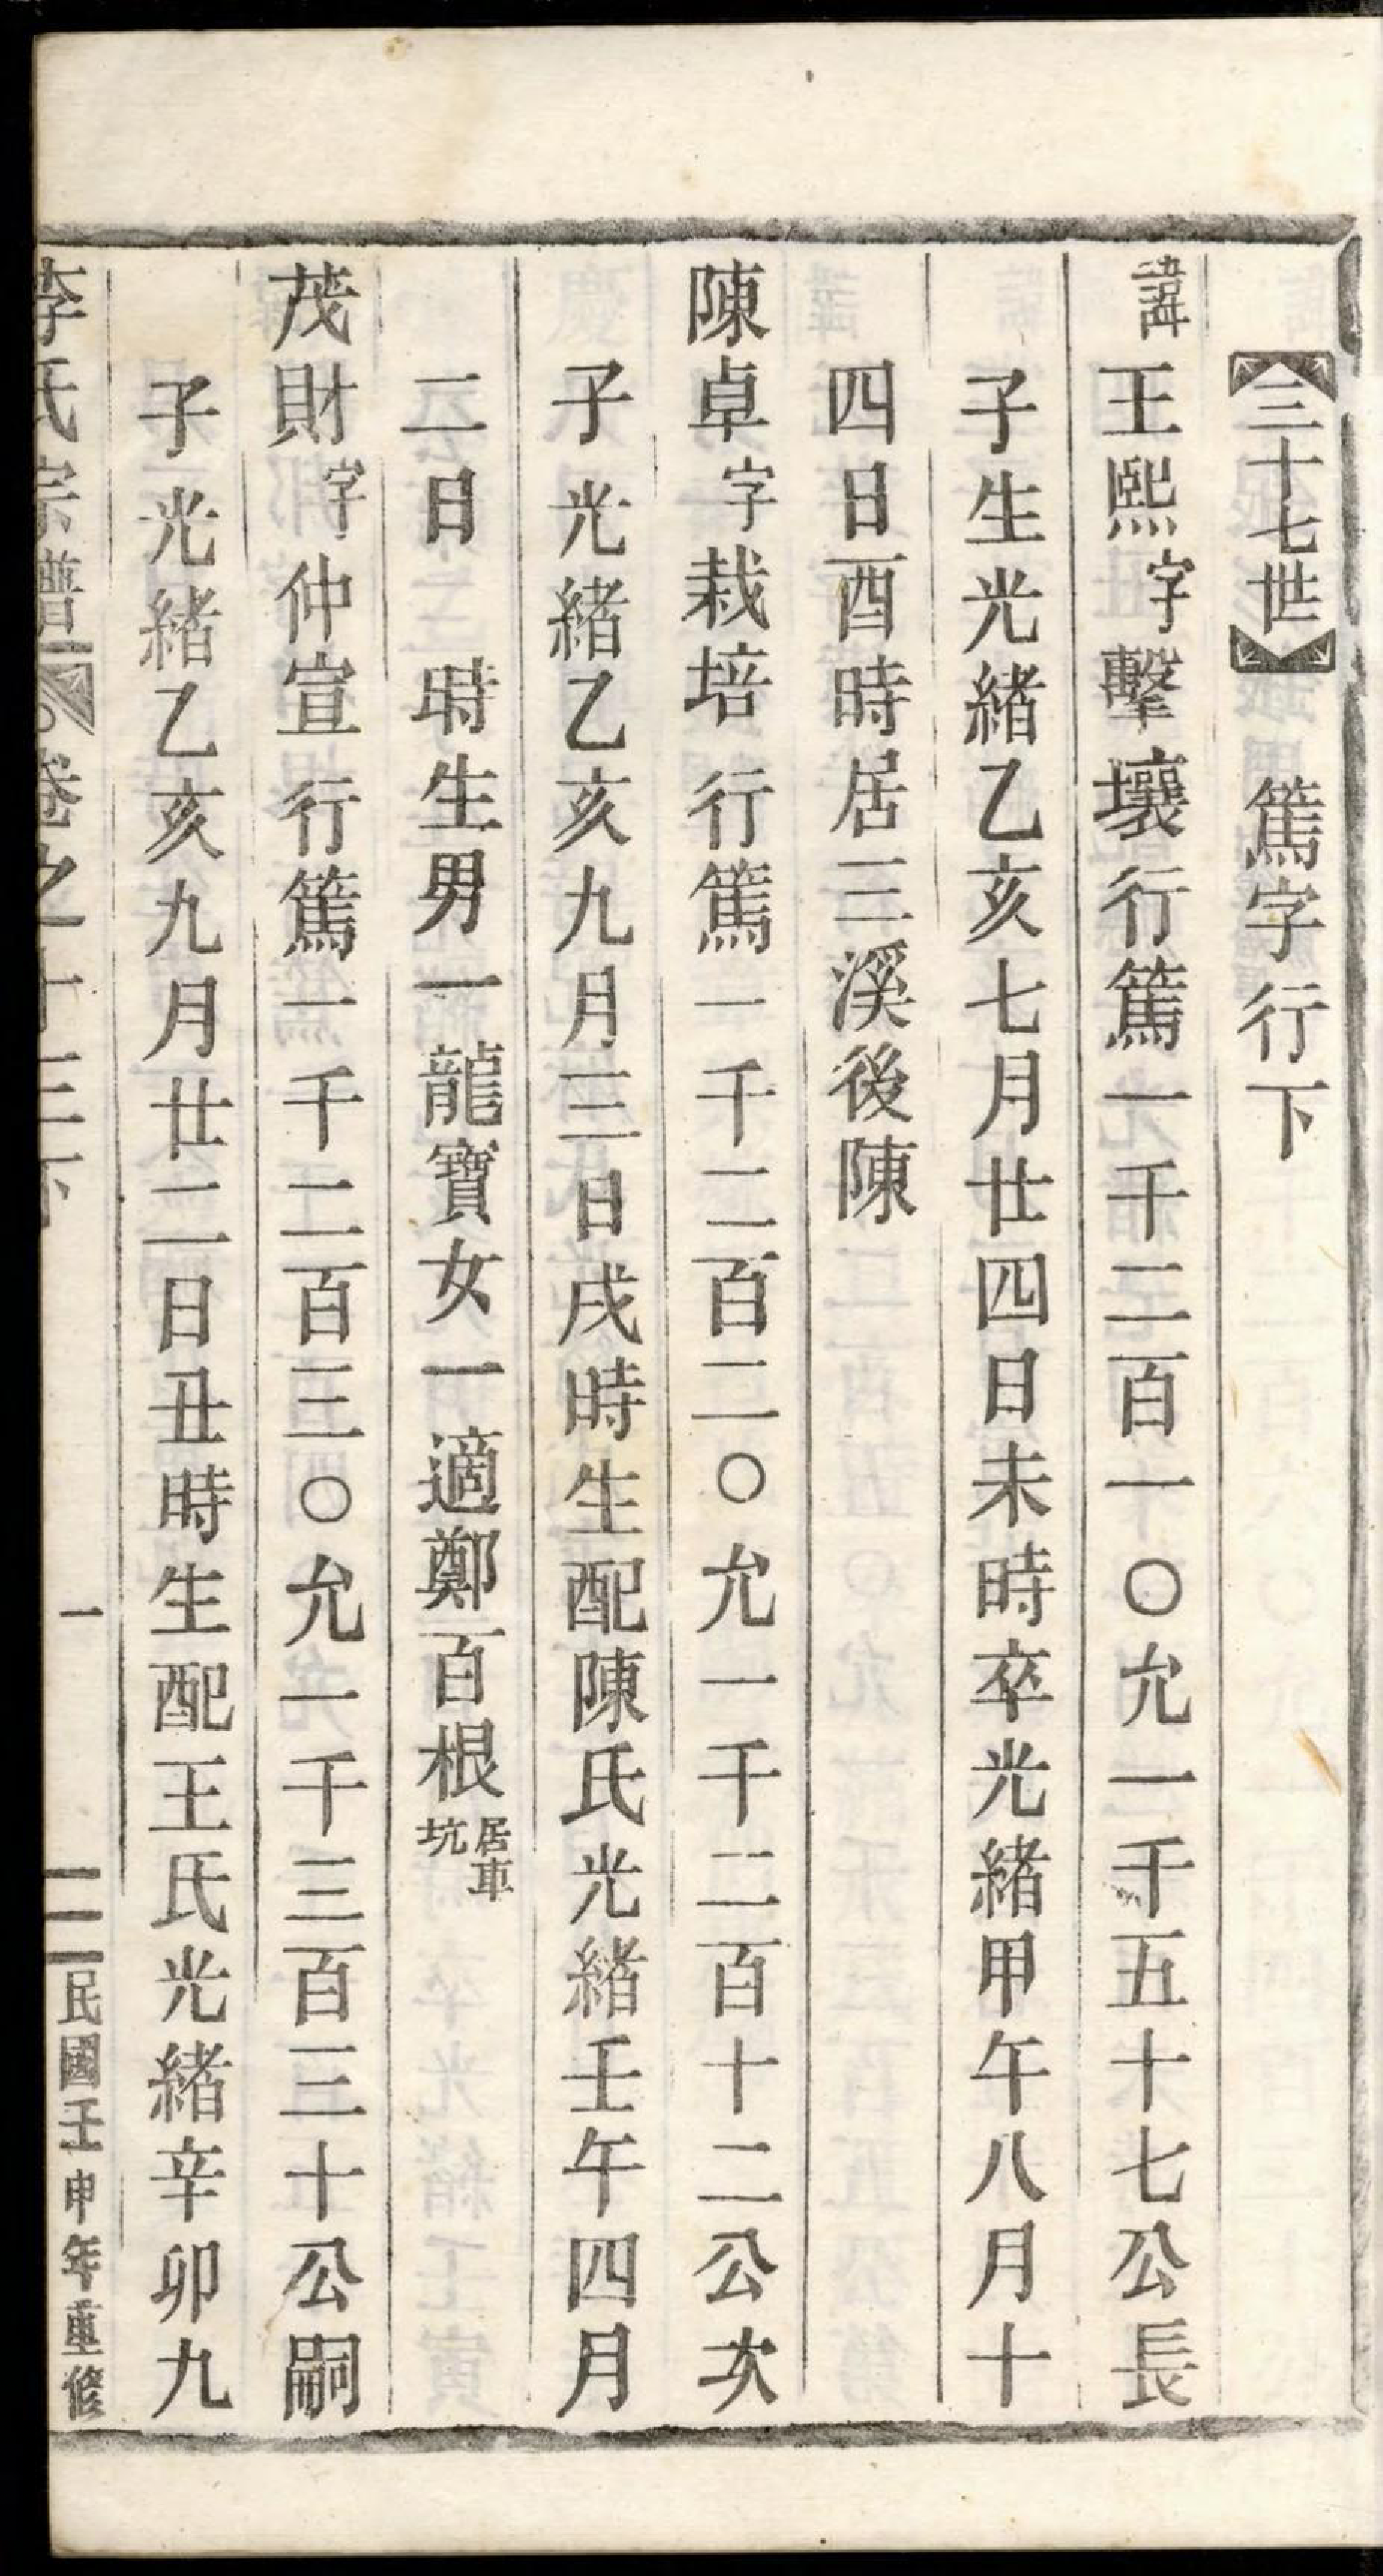 三十七世 篤字行下
諱王熙字擊壤行篤一千二百一〇允一千五十七公長
子生光緒乙亥七月廿四日未時卒光緒甲午八月十
四日酉時居三溪後陳
陳卓字栽培行篤一千二百二〇允一千二百十二公次
子光緒乙亥九月三日戌時生配陳氏光緒壬午四月
二日 時生男一龍寶女一適鄭百根居車坑
茂財字仲宣行篤一千二百三〇允一千三百三十公嗣
子光緒乙亥九月廿二日丑時生配王氏光緒辛卯九
李氏宗譜 卷之十三下 一 民國壬申年重修